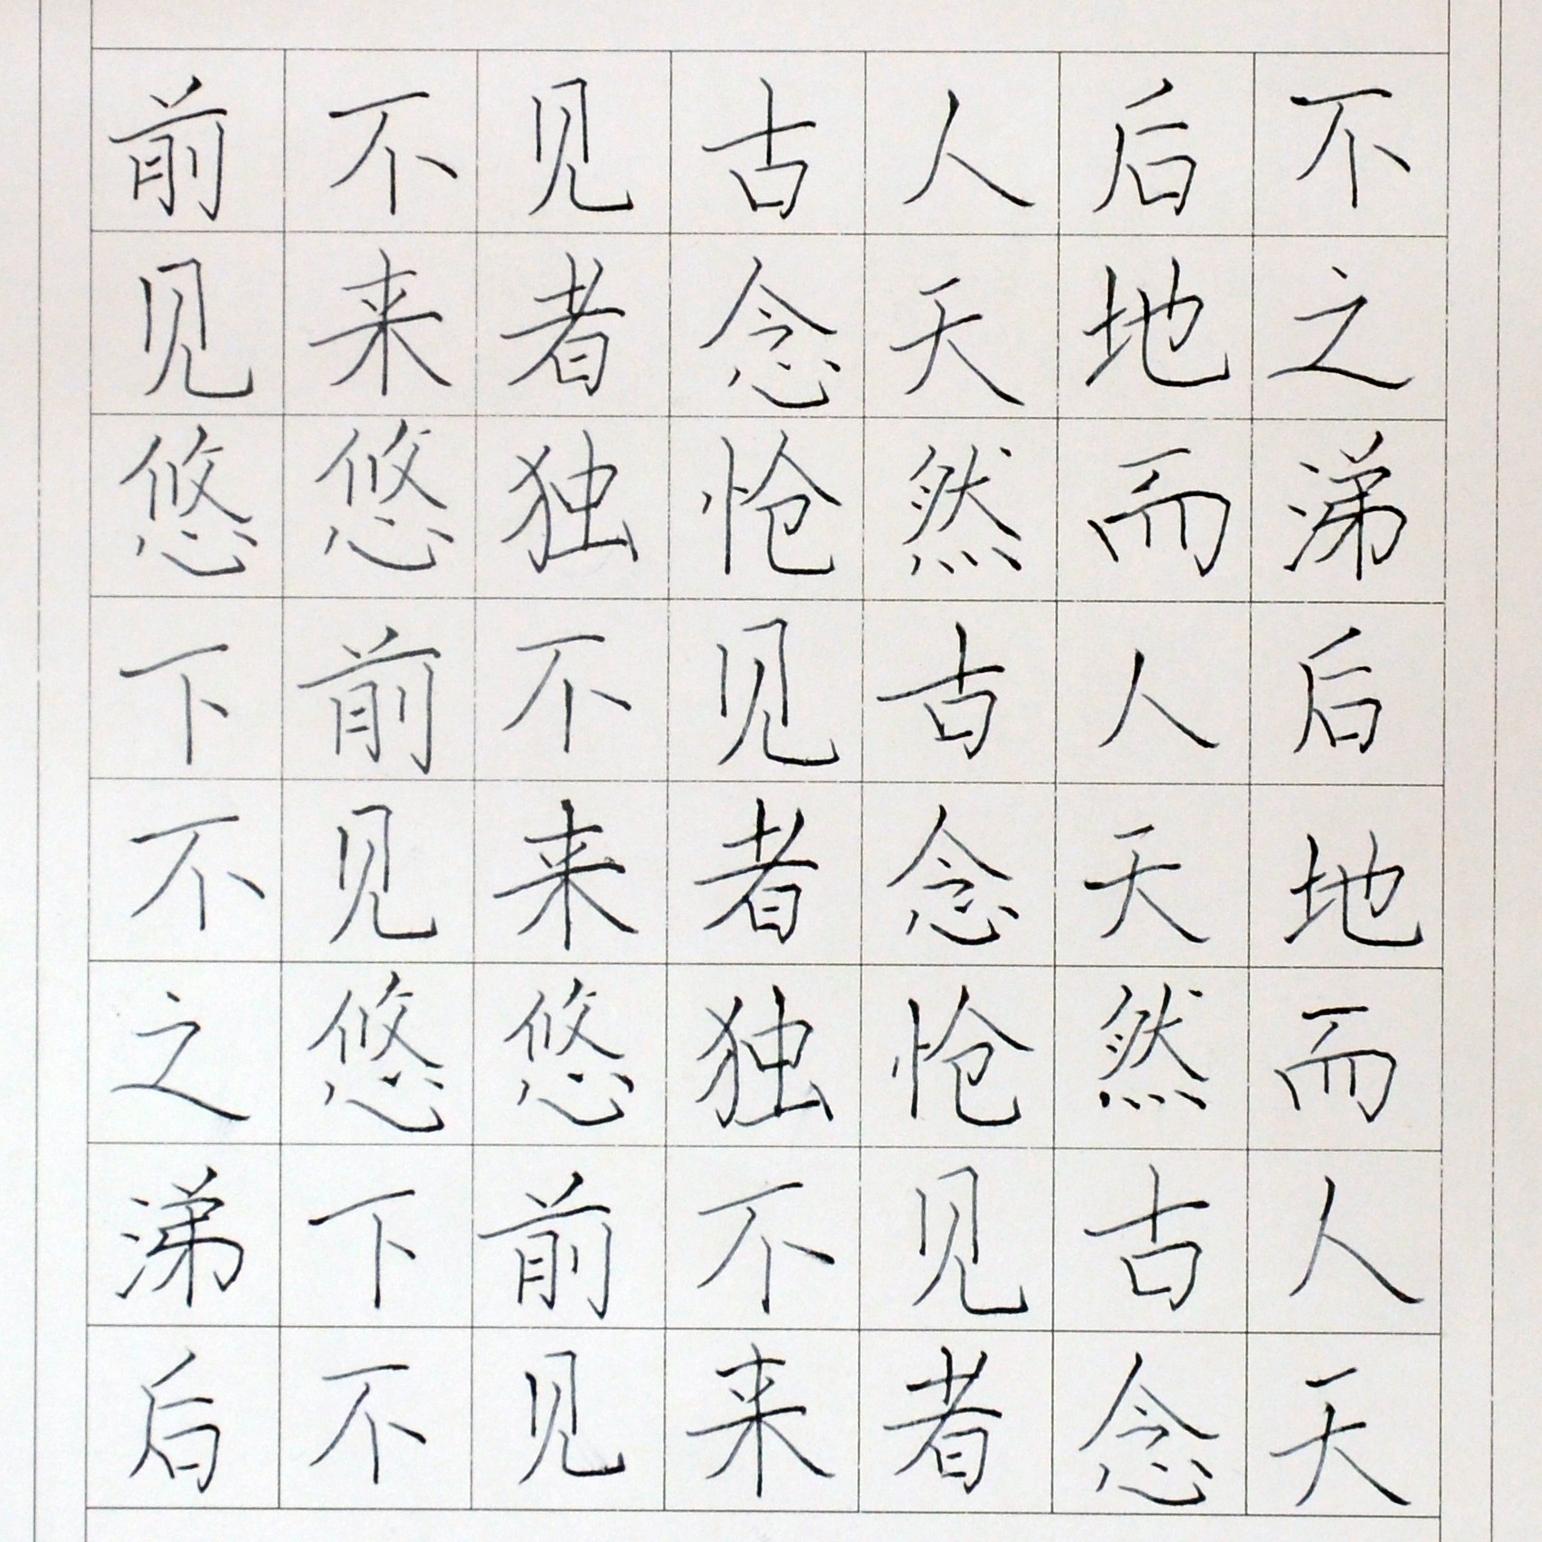 前不见古人后不
见来者念天地之
悠悠独怆然而涕
下前不见古人后
不见来者念天地
之悠悠独怆然而
涕下前不见古人
后不见来者念天